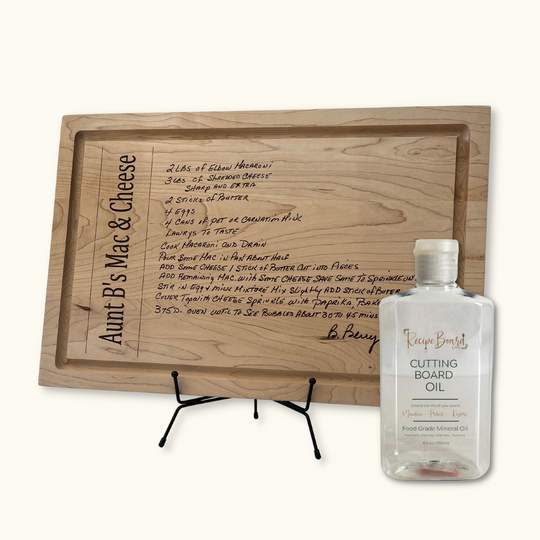 Aunt B's Mac & Cheese
2 LBS of Elbow Macaroni
3 LBS of Shredded Cheese
Sharp and Extra
2 Sticks of Butter
4 Eggs
4 Cans of Pet or Carnation Milk
Lawrys To Taste
Cook Macaroni and Drain
Pour Some Mac in Pan About Half
Add Some Cheese 1 Stick of Butter Cut into Pieces
Add Remaining Mac with Some Cheese Save Some To Sprinkle on
Stir in Egg & Milk Mixture Mix Slightly Add Stick of Butter
Cover Top with Cheese Sprinkle with Paprika, Bake
375D. Oven until To See Bubbles About 30 to 45 mins
B. Berry
Recipe Board
CUTTING
BOARD
OIL
Food Grade Mineral Oil